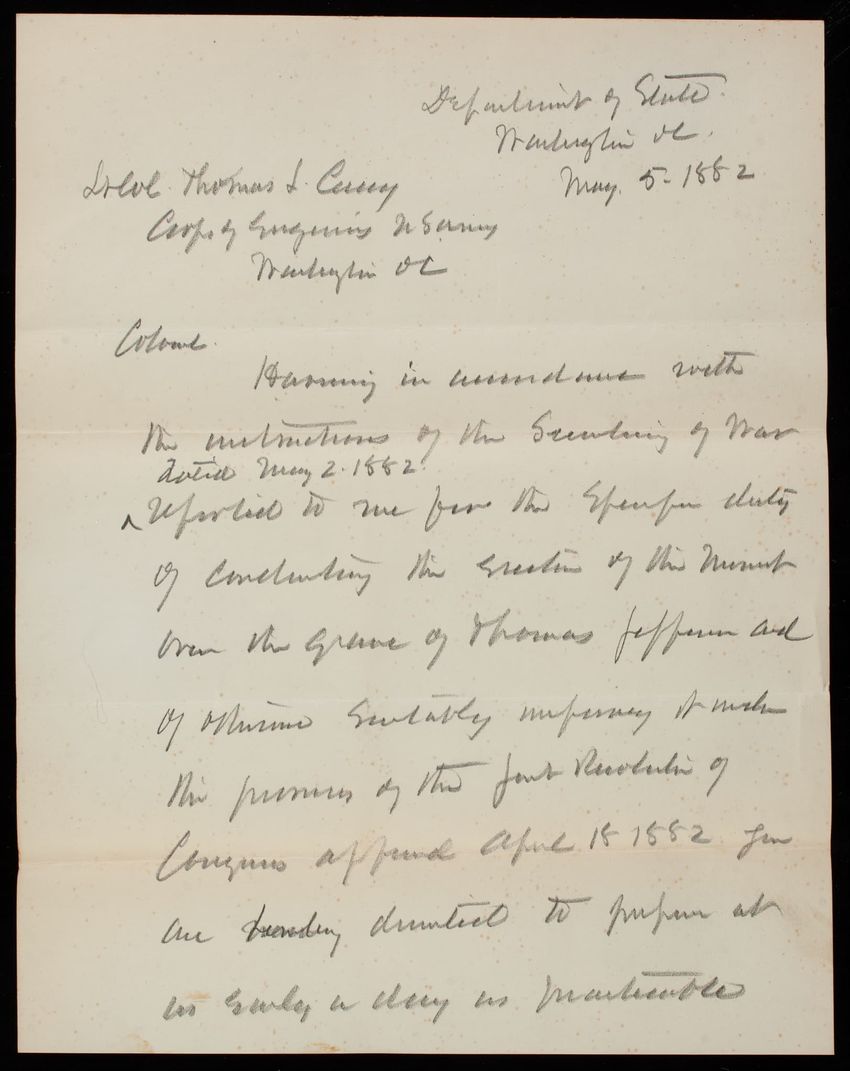 Department of State.
Washington DC.
May. 5. 1882
Lt Col. Thomas L. Casey
Corps of Engineers U S Army
Washington DC
Colonel.
Having in accordance with
the instructions of the Secretary of War
dated May 2. 1882.
^ reported to me for the special duty
of conducting the erection of the Monumt
over the grave of Thomas Jefferson and
of otherwise suitably improving it under
the provisions of the Joint Resolution of
Congress approved April 18 1882 you
are hereby directed to prepare at
as early a day as practicable